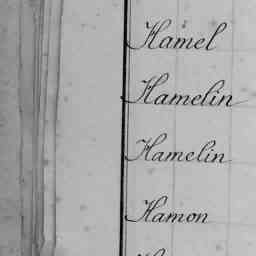 Hamel
Hamelin
Hamelin
Hamon